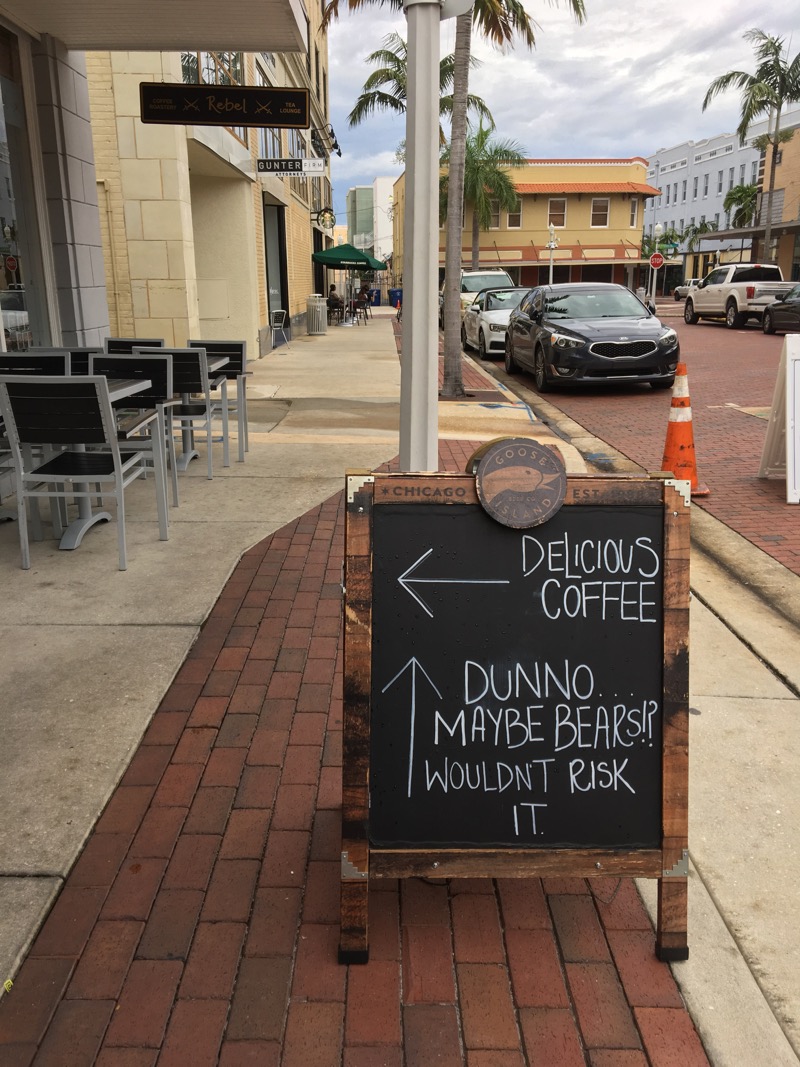 COFFEE ROASTERY Rebel TEA LOUNGE
GUNTER FIRM
ATTORNEYS
STOP
GOOSE
ISLAND
*CHICAGO
DELICIOUS
COFFEE
DUNNO....
MAYBE BEARS!?
WOULDN'T RISK
IT.